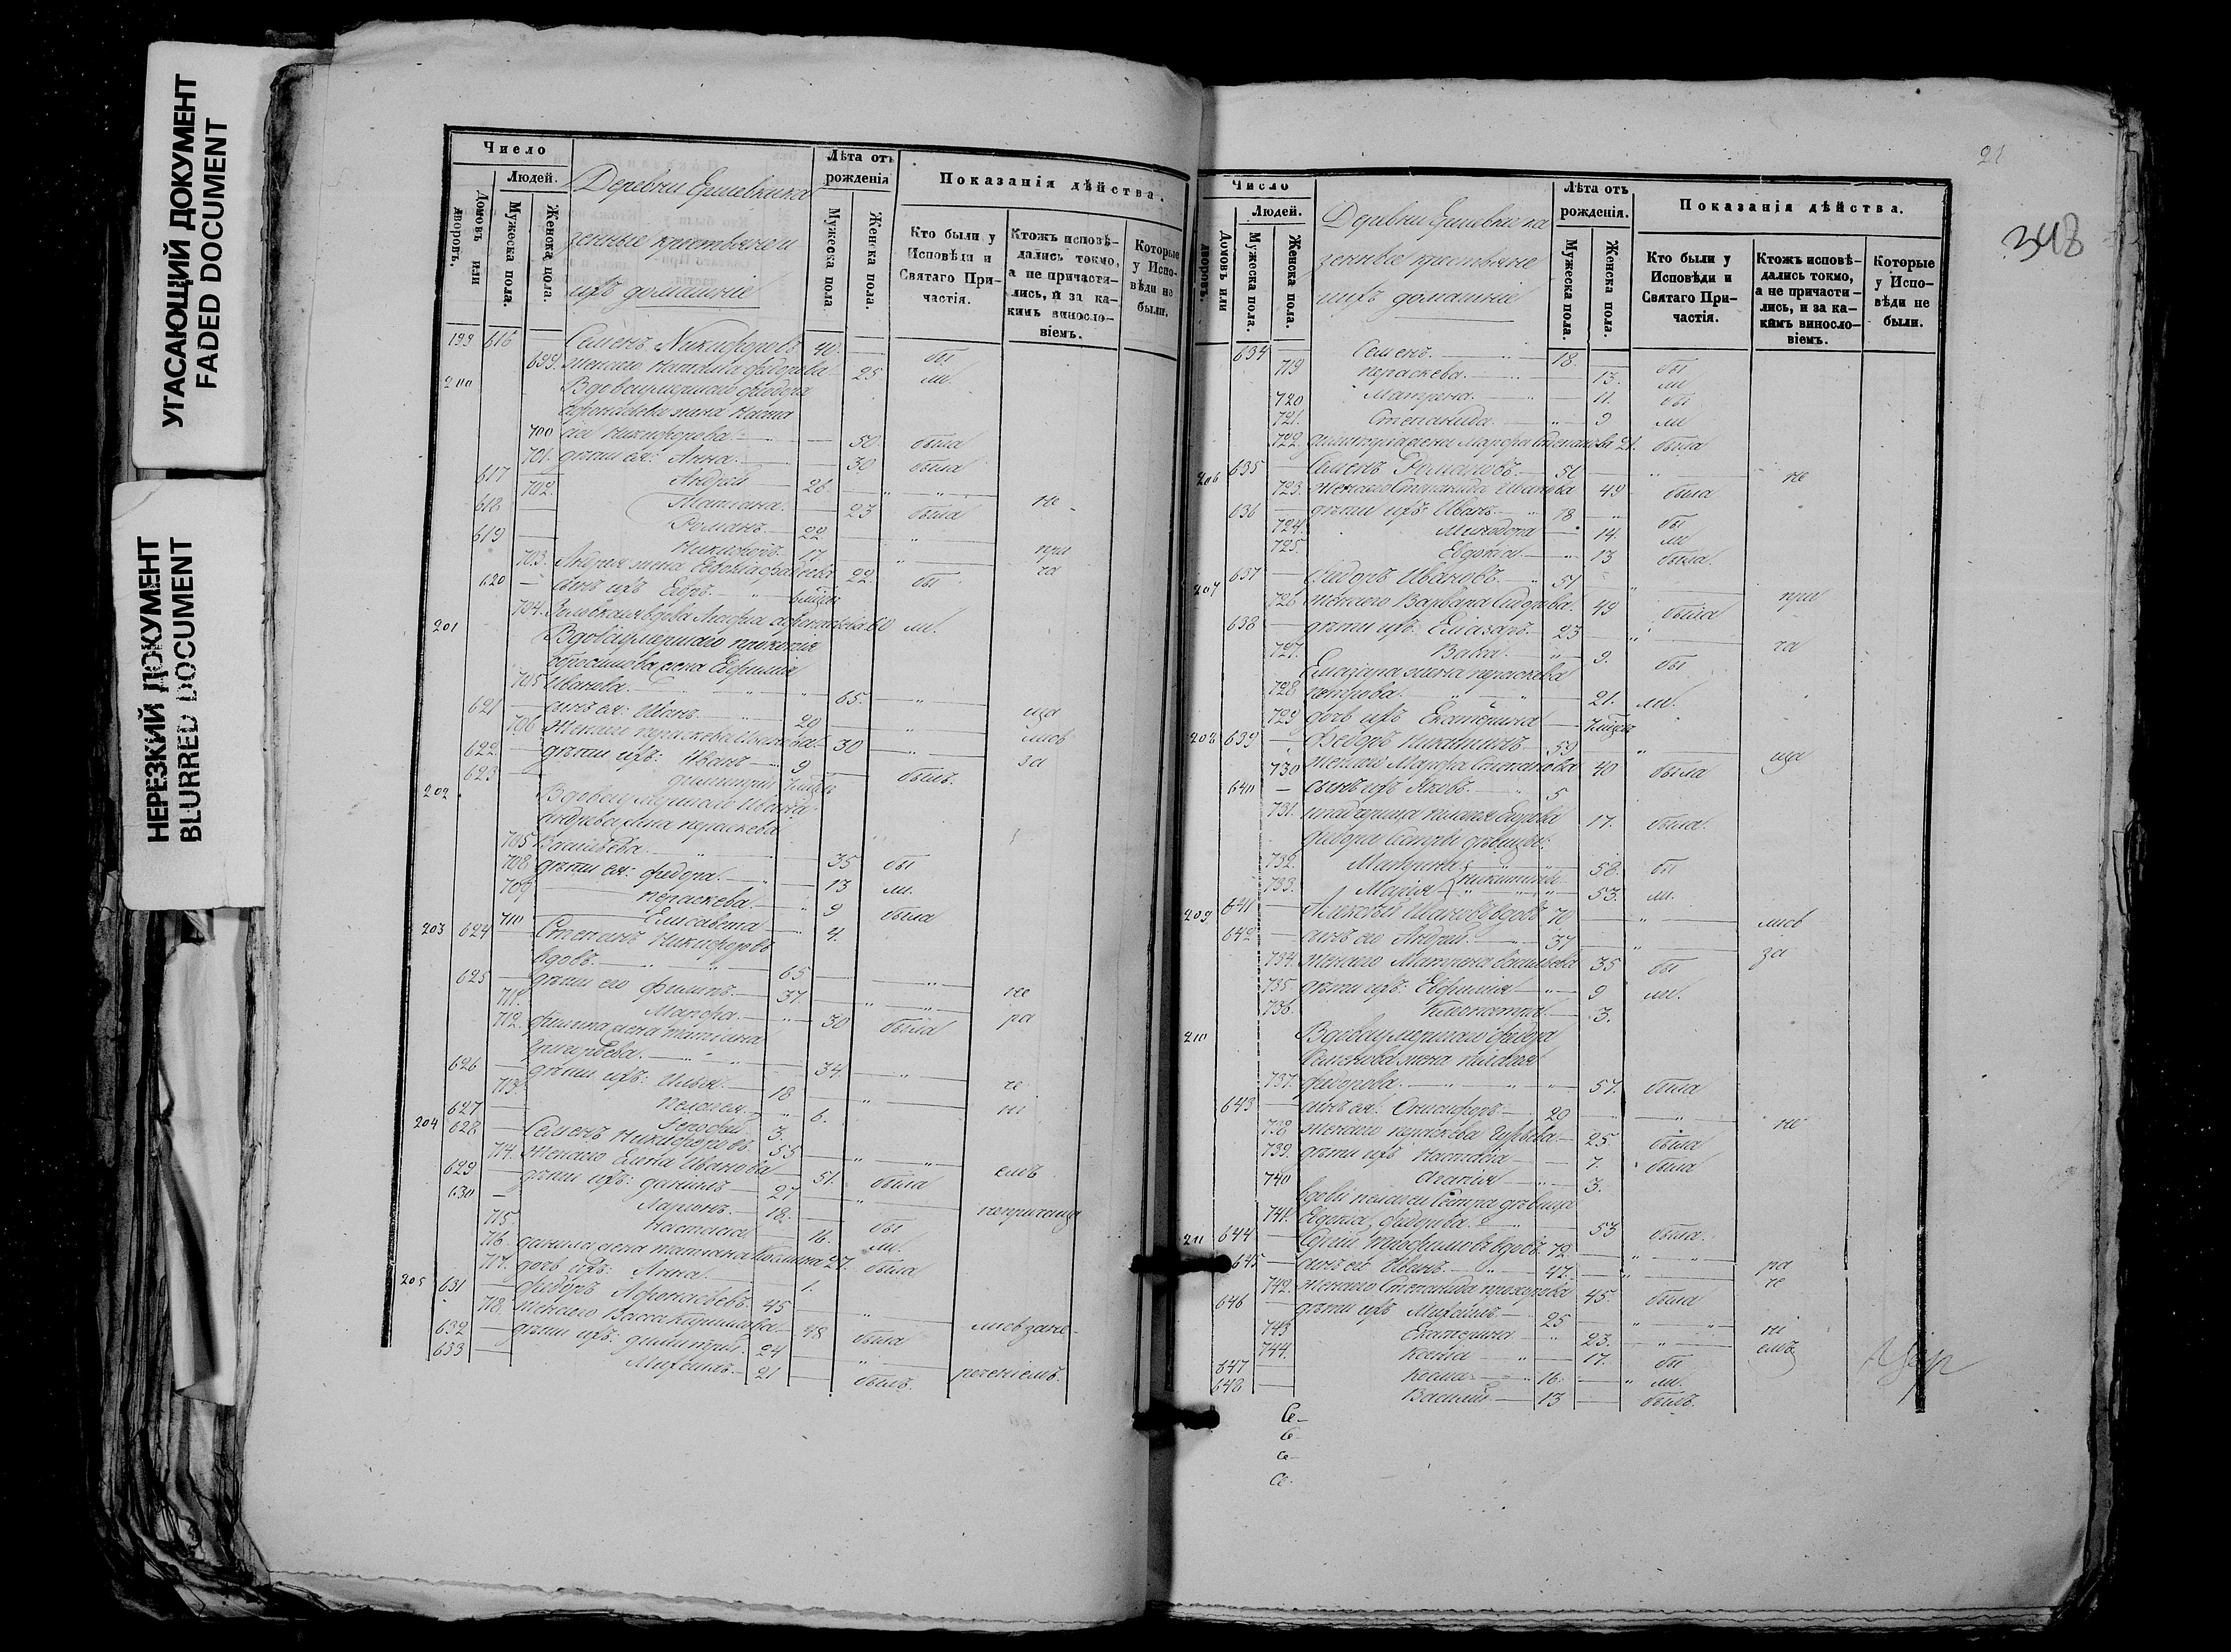 УГАСАЮЩИЙ ДОКУМЕНТ
FADED DOCUMENT
НЕРЕЗКИЙ ДОКУМЕНТ
BLURRED DOCUMENT
Число
Людей.
Домовъ или дворовъ.
Мужеска пола.
Женска пола.
Деревни Ершевки ка
зенные крестьяне и
ихъ домашніе
Лѣта отъ рожденія
Мужеска пола
Женска пола.
Показанія дѣйства.
Кто были у Исповѣди и Святаго Причастія.
Ктожъ исповѣдались токмо, а не причастились, и за какимъ винословіемъ.
Которые у Исповѣди не были.
199 616 Семенъ Никифоровъ 40. бы
699. жена его Наталья Федорова 25 ли.
200 Вдова умершаго Федора
Афонасьева жена Наста
700 сія Никифорова 50. была
701. дѣти ея: Анна. 30 была
617 Андрей 26.
702. Матрона. 23 была не
618 Романъ 22
619 Никифоръ 17. при
703. Андрея жена 22. бы ча
620 сынъ ихъ
704. вдова 60 ли.
201 Вдова умершаго Прокопія
жена Евфимія
705 Иванова. 65.
621 сынъ ея: Иванъ. 29 ща
706 жена его Параскева 30 лись
622 дѣти ихъ: Иванъ 9 за
623 Димитрій былъ.
202 Вдова умершаго Ивана
Андреева жена Параскева
705 Васильева. 35 бы
708 дѣти ея: Федора. 13 ли.
709 Параскева. 9 была
710 Елисавета 4.
203 624 Степанъ Никифоровъ
вдовъ. 65
625 дѣти его Филипъ. 37. не
711. Марѳа. 30 была ра
712. Филипа жена Татіана
Григорьева. 34.
626 дѣти ихъ: Илья. 18 че
713. Пелагея. 6. ні
627 3.
204 628 Семенъ Никифоровъ 55
714. жена его Елена Иванова 51. была емъ
629 дѣти ихъ: Данилъ 27
630 Ларіонъ. 18. непричаща
715. Настасья. 16. бы
716. Данила жена Татіана 27. ли.
717. дочь ихъ: Анна. 1. была
205 631 Федоръ Афонасьевъ. 45
718. жена его Васса Кирилова 48 была лись за не
632 дѣти ихъ: Димитрій. 24
633 Михаилъ. 21 былъ. реченіемъ.
21
348
Число
Людей.
Домовъ или дворовъ.
Мужеска пола.
Женска пола.
Деревни Ершевки ка
зенные крестьяне
и ихъ домашніе
Лѣта отъ рожденія.
Мужеска пола.
Женска пола.
Показанія дѣйства.
Кто были у Исповѣди и Святаго Причастія.
Ктожъ исповѣдались токмо, а не причастились, и за какимъ винословіемъ.
Которые у Исповѣди не были.
634 Семенъ. 18. бы
719 Параскева. 13. ли
720 Матрона. 11. бы
721. Степанида. 9 ли
722. Димитрія жена Марѳа Степанова 21. была
206 635 Семенъ Романовъ. 51 не
723. жена его Степанида Иванова 49 была
636 дѣти ихъ: Иванъ. 18 бы
724. Минодора 14. ли
725. Евдокія 13 была.
207 637 Федоръ Ивановъ. 51 при
726 жена его Варвара Сидорова. 49 была
638 дѣти ихъ: Елеазаръ. 23 ча
727. Васса. 9. бы
Елеазара жена Параскева
728 Петрова. 21. ли.
729 дочь ихъ Екатерина
208 639 Федоръ Никитинъ 59 ща
730 жена его Марѳа Степанова 40 была
640 сынъ ихъ Яковъ. 5
731. падчерица 17. была.
Федора сестры дѣвицы:
732. Никитины 58. бы
733. Марія 53. ли.
209 641 Алексѣй Ивановъ вдовъ 70 лись
642 сынъ его Андрей. 37 за
734. жена его Матрона Васильева 35 бы
735. дѣти ихъ: Евфимія 9 ли.
736. 3.
210 Вдова умершаго Федора
Семенова жена Пелагея
737. Федорова. 57. была
643 сынъ ея: Онисифоръ 29 не
738 жена его Параскева 25. была
739. дѣти ихъ Настасія 7. была
740 Агапія 3.
вдовы Пелагеи сестра дѣвица
741. Евдокія Федорова. 53 была.
211 644 Сергій вдовъ. 72 ра
645 сынъ его Иванъ. 47. че
742. жена его Степанида Прохорова 45. была
646 дѣти ихъ Михаилъ 25 ні
743 Екатерина 23. емъ
744. Ксенія 17. бы
647 Косма 16. ли.
648 Василій. 13 былъ.
Се-
Се-
Се-
Се-